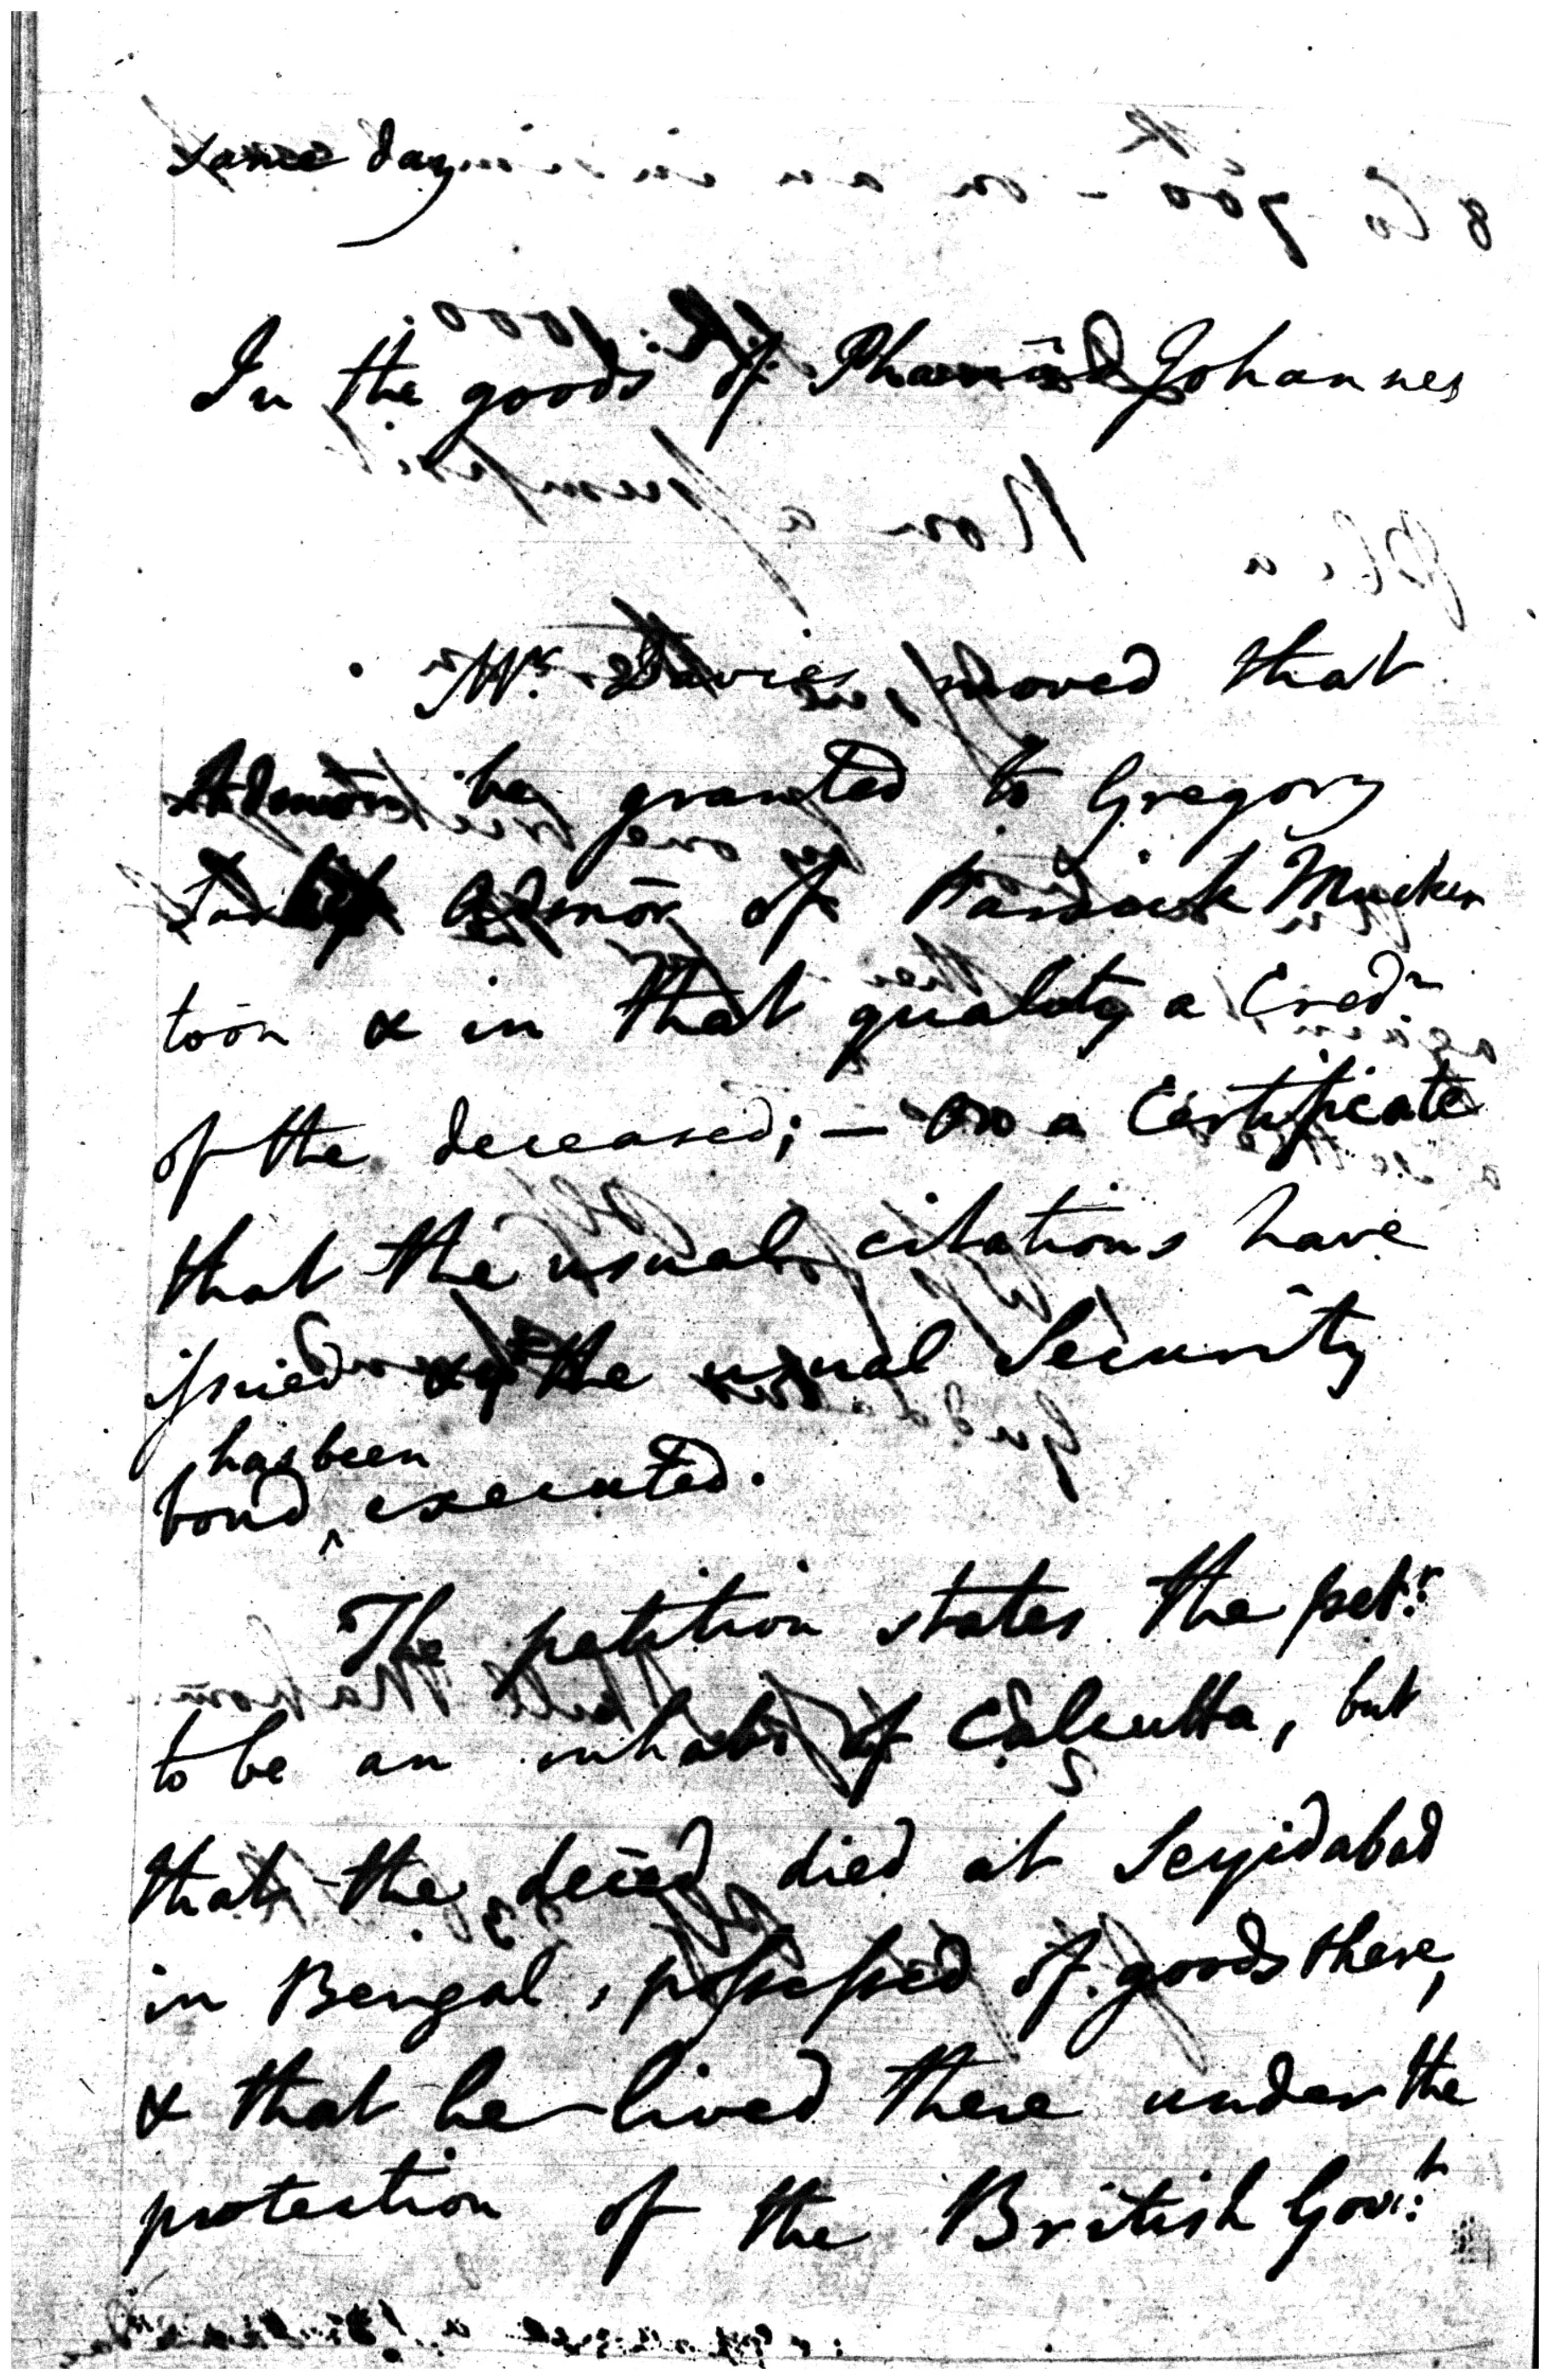 same day
In the goods of Johannes
Mr. Davies, moved that
Admõn be granted to Gregory
Admõr of Parsick Mucker
toon & in that quality a Credr
of the deceased; — on a Certificate
that the usual citations have
issued & the usual Security
has been
bond ‸ executed.
The petition states the petr.
to be an inhabt of Calcutta, but
that the decēd died at Seyidabad
in Bengal, possessed of goods there,
& that he lived there under the
protection of the British Govt.